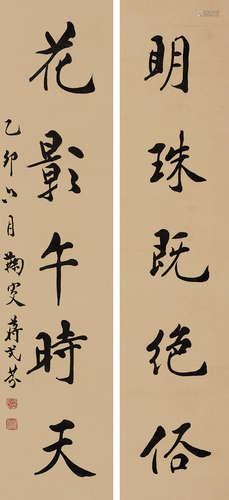 明珠既絕俗
花影午時天
乙卯六月鞠叟蔣式芬